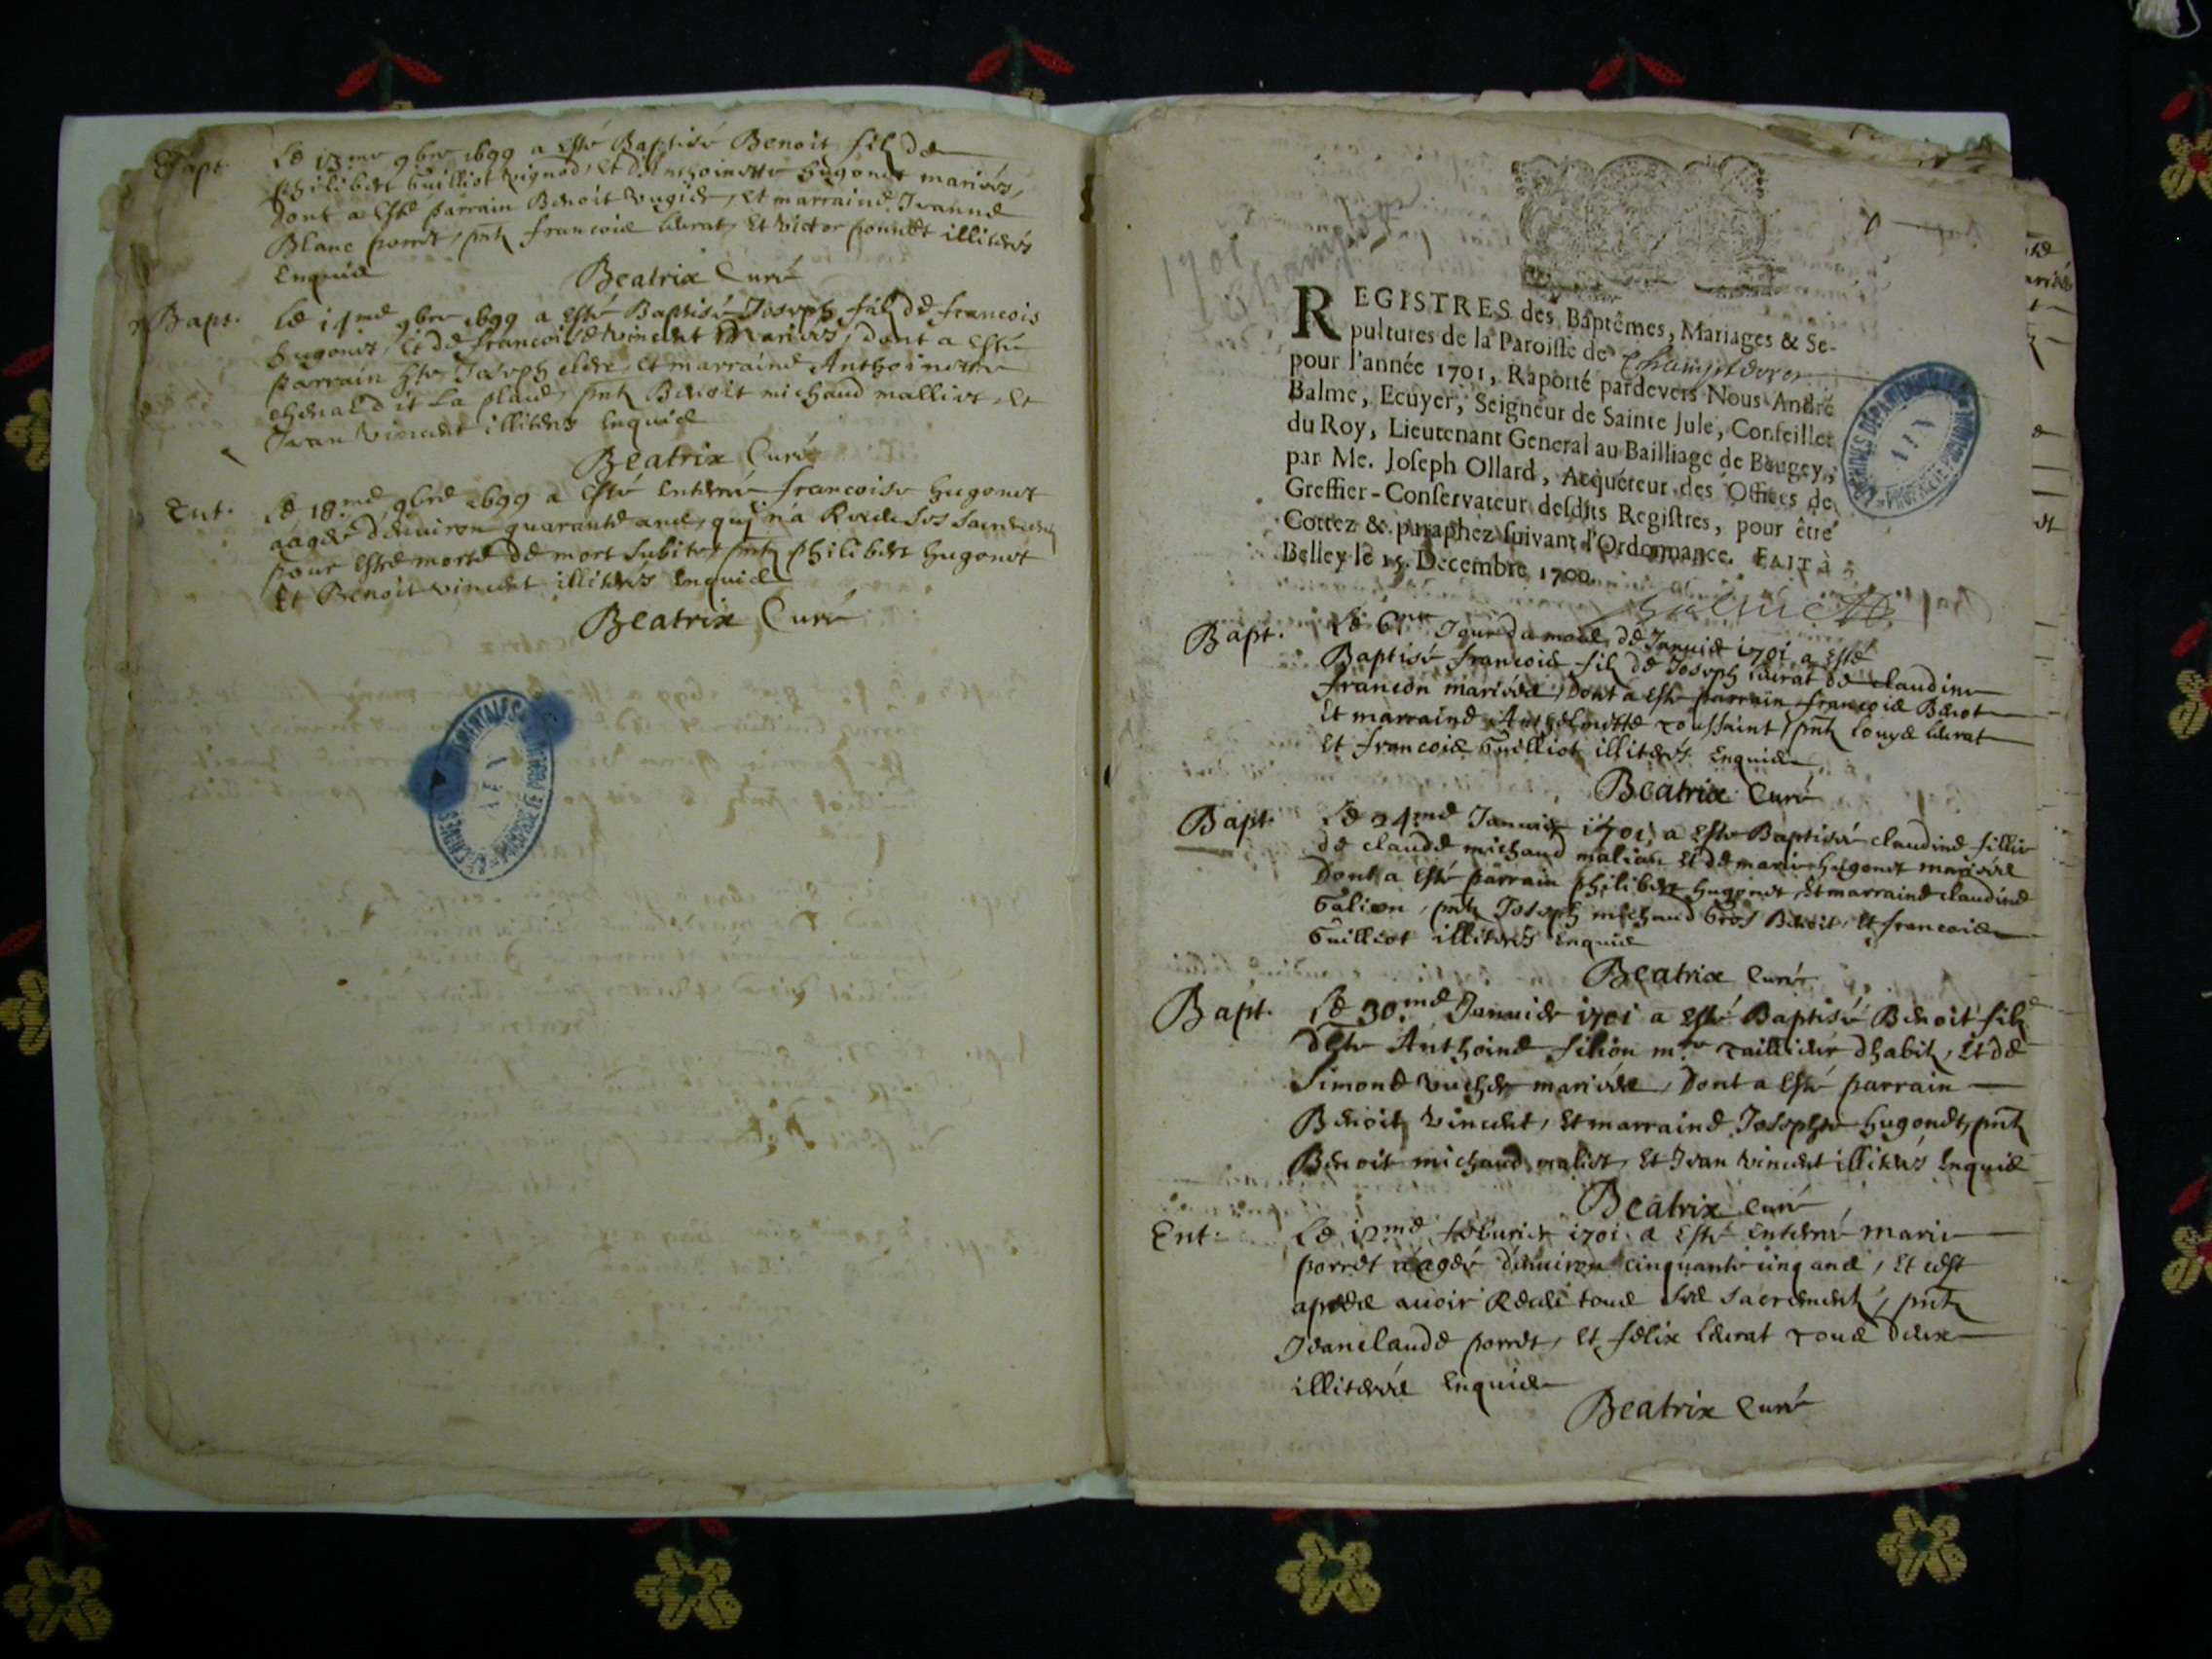 Bapt. Le 13.me 9bre 1699 a esté Baptisé Benoit fils de
philibert Guilliot vignod, et d'Anthoinette hugonet mariés,
Dont a esté parrain Benoit Vugier, et marraine Jeanne
Blanc porret, pnts francois Leurat, et victor ponnet illiterés
Enquis
Beatrix Curé
Bapt. Le 14.me 9bre 1699 a esté Baptisé Joseph fils de francois
hugonet, et de francoise vincent mariés, dont a esté
parrain hte Joseph , et marraine Anthoinette
dit La plaud, pnts Benoit michaud malliet, et
Jean vincent illiterés Enquis
Beatrix Curé
Ent. Le 18.me 9bre 1699 a esté Enterré francoise hugonet
aagée d'environ quarante ans, qui n'a Receu ses sacrements
pour estre morte de mort subite, pnts philibert hugonet
et Benoit vincent illiterés Enquis
Beatrix Curé
1701
REGISTRES des Baptêmes, Mariages & Se-
pultures de la Paroisse de Champdoron
pour l'année 1701, Raporté pardevers Nous André
Balme, Ecuyer, Seigneur de Sainte Jule, Conseiller
du Roy, Lieutenant General au Bailliage de Bougey,
par Me. Joseph Ollard, Acquéreur des Offices de
Greffier-Conservateur desdits Registres, pour être
Cottez & paraphez suivant l'Ordonnance. FAIT à
Belley le 15. Decembre 1700.
Balme
Bapt. Le 6.me Jour du mois de Januier 1701 a esté
Baptisé francois fils de Joseph Leurat de claudine
francon mariés, Dont a esté parrain francois Benot
Et marraine Anthelmette Toussaint, pnts Louys Leurat
Et francois Guilliot illiterés Enquis
Beatrix Curé
Bapt. Le 24.me Januier 1701 a esté Baptisée claudine fillie
de claude michaud malian et de marie hugonet mariés
Dont a esté parrain philibert hugonet, et marraine claudine
Galion, pnts Joseph michaud Gros Benoit, et francois
Guilliot illiterés Enquis
Beatrix Curé
Bapt. Le 30.me Januier 1701 a esté Baptisé Benoit fils
D'hte Anthoine filion m.re Taillieur d'habits, et de
Simone Vucher mariés, Dont a esté parrain
Benoit vincent, et marraine Josephte hugonet, pnts
Benoit michaud maliet, et Jean vincent illiterés Enquis
Beatrix Curé
Ent. Le 12.me feburier 1701 a esté Enterré marie
porret aagée d'enuiron cinquante cinq ans, et cest
apres auoir Receu tous ses sacrements, pnts
Jean claude porret, et felix Leurat tous deux
illiterés Enquis
Beatrix Curé